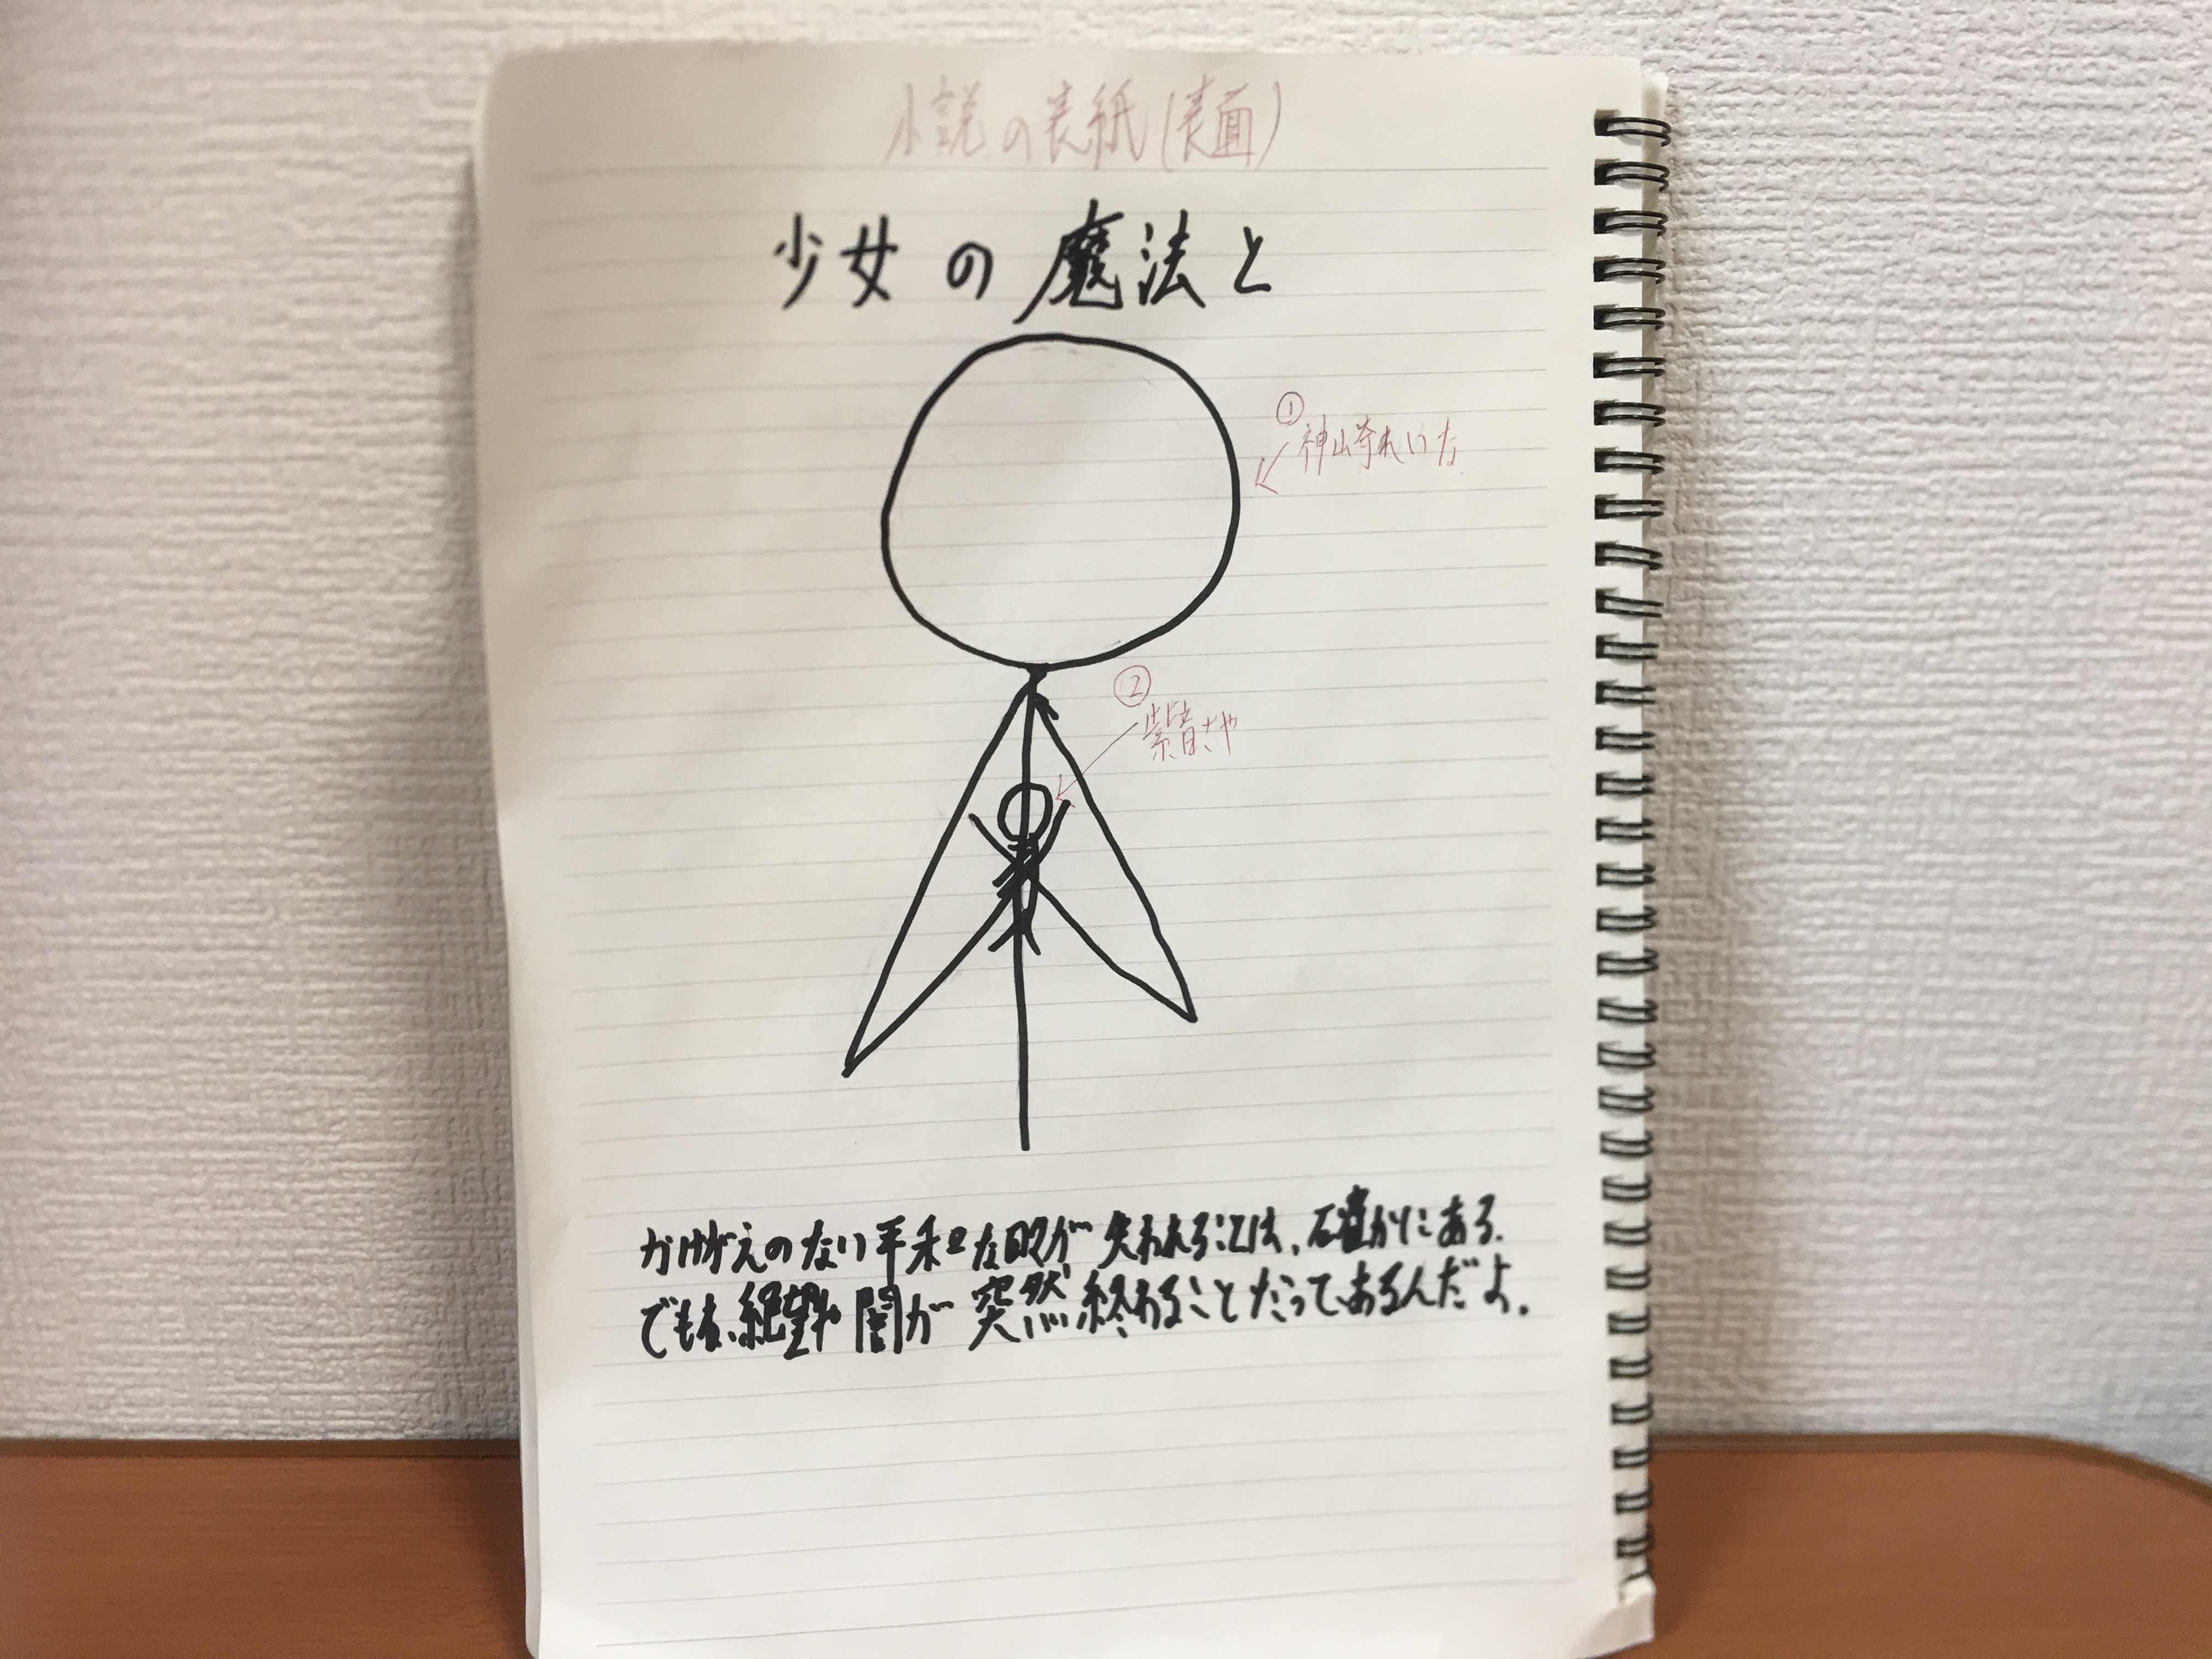 小説の表紙(表面)
少女の魔法と
①
神山奇れいな
②
紫音さや
かけがえのない平和な日々が失われることは、確かにある。
でもね、絶望や闇が突然終わることだって、あるんだよ。